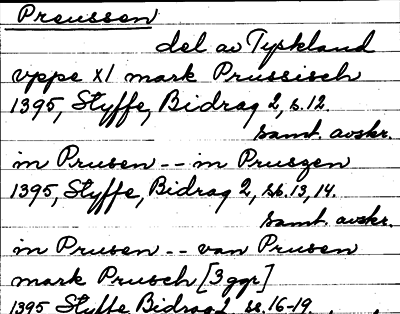 Preussen
del av Tyskland
vppe XI mark Prussisch
1395, Styffe, Bidrag 2, s. 12.
samt. avskr.
in Prusen -- in Pruszen
1395, Styffe, Bidrag 2, ss. 13, 14.
samt. avskr.
in Prusen -- van Prusen
mark Prusch [3 ggr]
1395 Styffe Bidrag 2, ss. 16-19.